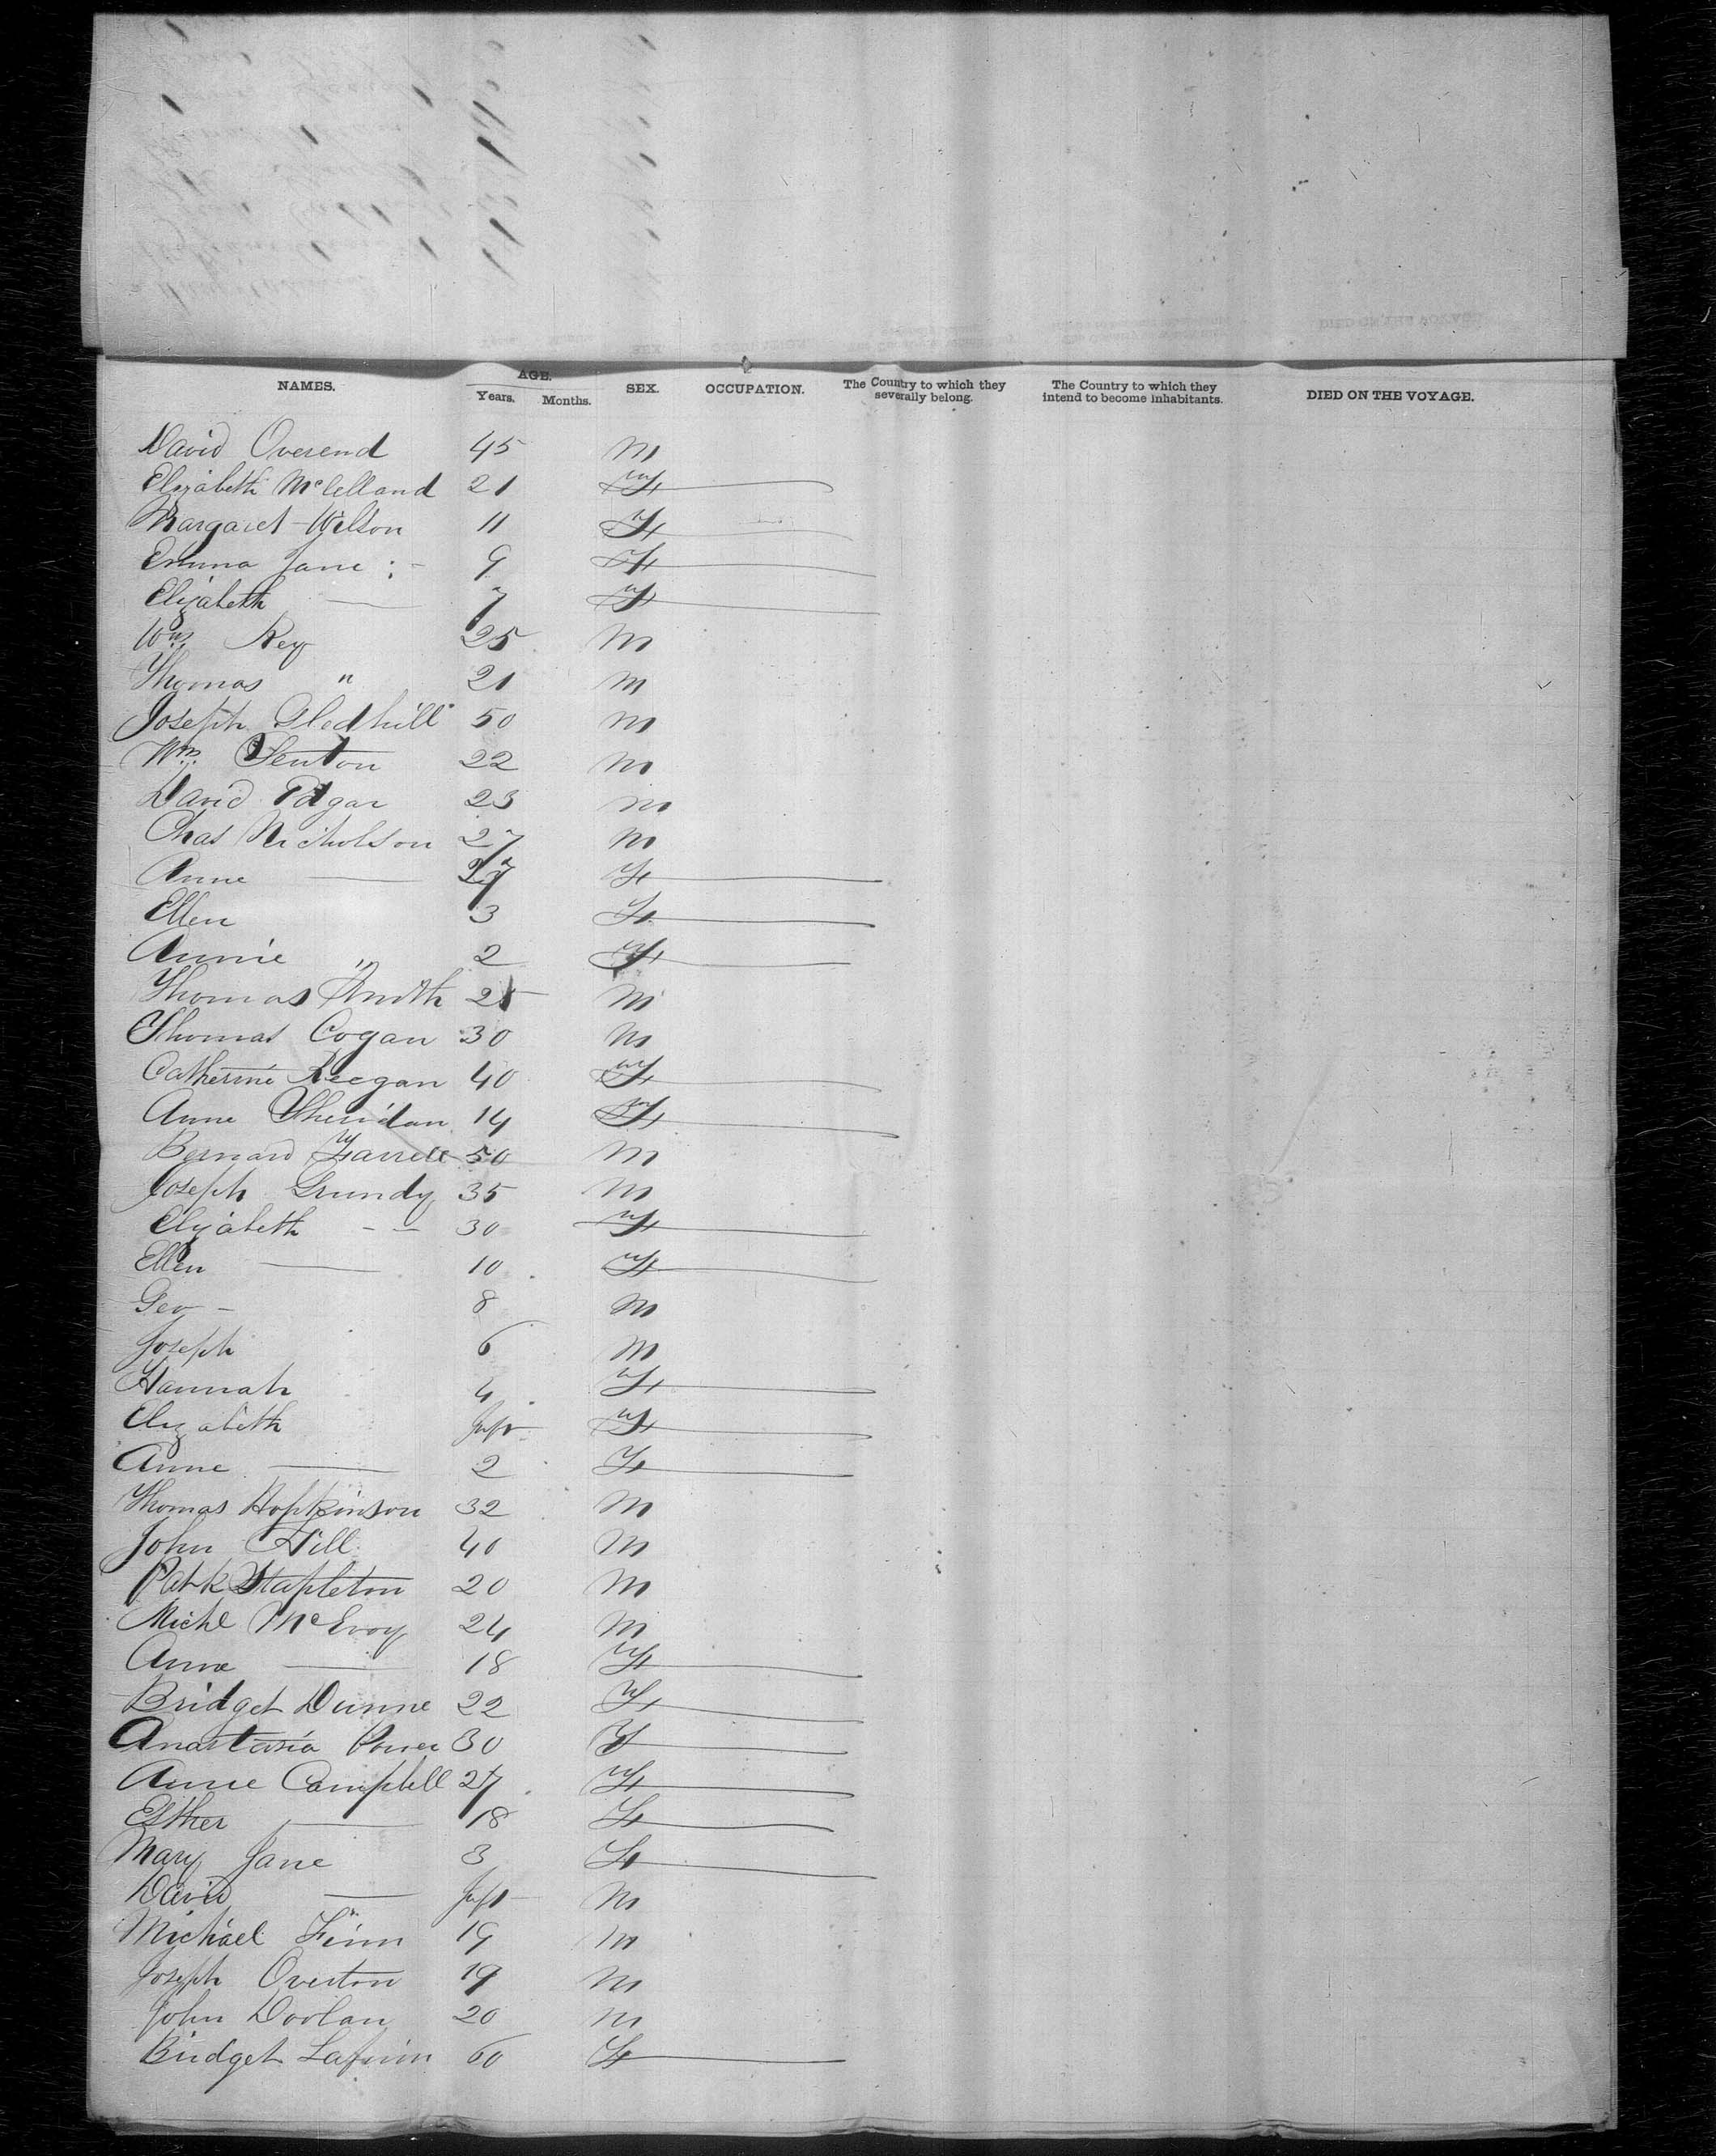 NAMES. AGE. Years. Months. SEX. OCCUPATION. The Country to which they severally belong. The Country to which they intend to become inhabitants. DIED ON THE VOYAGE.
David Overend 45 M
Elizabeth McClelland 21 F
Margaret Wilson 11 F
Emma Jane 9 F
Elizabeth — 7 F
Wm Rey 25 M
Thomas " 21 M
Joseph Gledhill 50 M
Wm Fenton 22 M
David Edgar 23 M
Chas Nicholson 27 M
Anne — 27 F
Ellen 3 F
Annie " 2 F
Thomas Smith 25 M
Thomas Cogan 30 M
Catherine Keegan 40 F
Anne Sheridan 14 F
Bernard Farrell 50 M
Joseph Grundy 35 M
Elizabeth - - 30 F
Ellen — 10 F
Geo - 8 M
Joseph 6 M
Hannah 4 F
Elizabeth Inft F
Anne — 2 F
Thomas Hopkinson 32 M
John Hill 40 M
Patk Stapleton 20 M
Michl McEvoy 24 M
Anne — 18 F
Bridget Dunne 22 F
Anastasia Power 30 F
Anne Campbell 27 F
Esther — 18 F
Mary Jane 3 F
David — Inft M
Michael Finn 19 M
Joseph Overton 19 M
John Doolan 20 M
Bridget 60 F